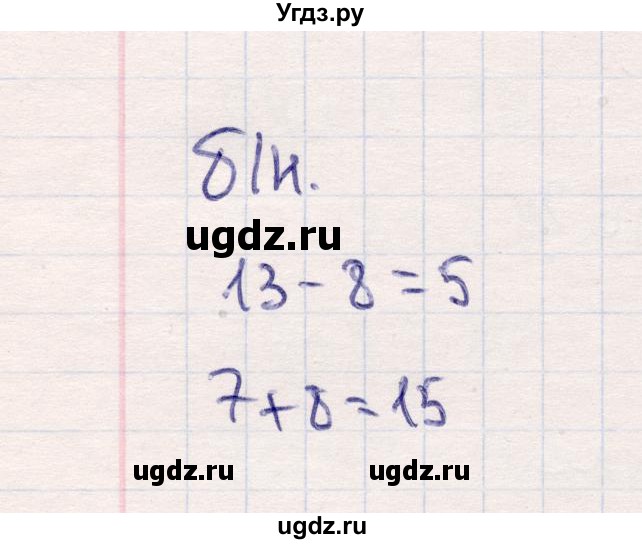 Угдз.ру
б/н.
ugdz.ru
13 - 8 = 5
7 + 8 = 15
ugdz.ru ugdz.ru
ugdz.ru